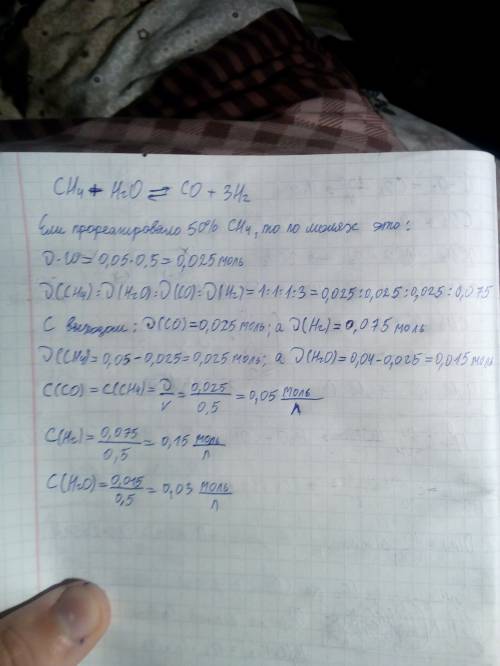 CH₄ + H₂O ⇌ CO + 3H₂
Если прореагировало 50% CH₄, то по молях это:
0,05·0,5 = 0,025 моль
ν(CH₄):ν(H₂O):ν(CO):ν(H₂) = 1:1:1:3 = 0,025:0,025:0,025:0,075
С выходом: ν(CO) = 0,025 моль; а ν(H₂) = 0,075 моль
ν(CH₄) = 0,05 - 0,025 = 0,025 моль; а ν(H₂O) = 0,04 - 0,025 = 0,015 моль
C(CO) = C(CH₄) = ν/V = 0,025/0,5 = 0,05 моль/л
C(H₂) = 0,075/0,5 = 0,15 моль/л
C(H₂O) = 0,015/0,5 = 0,03 моль/л